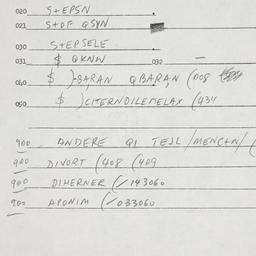 020 S+EPSN
021 S+OF QSVN
030 S+EPSELE
031 $ QKNW 032 —
040 $ )-BARAN QBARAN (008
050 $ )CITERNDILEMELAX (434
900 ANDERE Q1 TEJL /MENC+N/ (
900 DIVORT (408 (409
900 DIHERNER (✓143060
900 APONIM (✓033060